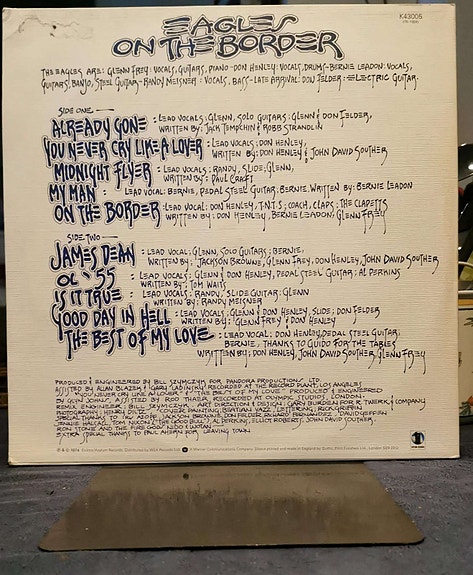 EAGLES
ON THE BORDER
K43005
THE EAGLES ARE: GLENN FREY: VOCALS, GUITARS, PIANO-DON HENLEY: VOCALS, DRUMS-BERNIE LEADON: VOCALS,
GUITARS, BANJO, STEEL GUITAR-RANDY MEISNER: VOCALS, BASS-LATE ARRIVAL: DON FELDER: ELECTRIC GUITAR.
SIDE ONE
ALREADY GONE : LEAD VOCALS: GLENN, SOLO GUITARS: GLENN & DON FELDER,
WRITTEN BY: JACK TEMPCHIN & ROBB STRANDLIN
YOU NEVER CRY LIKE A LOVER : LEAD VOCALS: DON HENLEY,
WRITTEN BY: DON HENLEY & JOHN DAVID SOUTHER
MIDNIGHT FLYER : LEAD VOCALS: RANDY, SLIDE: GLENN,
WRITTEN BY: PAUL CRAFT
MY MAN : LEAD VOCAL: BERNIE, PEDAL STEEL GUITAR: BERNIE. WRITTEN BY: BERNIE LEADON
ON THE BORDER : LEAD VOCAL: DON HENLEY, T.N.T.S; COACH, CLAPS: THE CLAPETTS
WRITTEN BY: DON HENLEY, BERNIE LEADON, GLENN FREY
SIDE TWO
JAMES DEAN : LEAD VOCALS: GLENN, SOLO GUITARS: BERNIE,
WRITTEN BY: JACKSON BROWNE, GLENN FREY, DON HENLEY, JOHN DAVID SOUTHER
OL' 55 : LEAD VOCALS: GLENN & DON HENLEY, PEDAL STEEL GUITAR: AL PERKINS
WRITTEN BY: TOM WAITS
IS IT TRUE : LEAD VOCALS: RANDY, SLIDE GUITAR: GLENN
WRITTEN BY: RANDY MEISNER
GOOD DAY IN HELL : LEAD VOCALS: GLENN & DON HENLEY, SLIDE: DON FELDER
WRITTEN BY: GLENN FREY & DON HENLEY
THE BEST OF MY LOVE : LEAD VOCAL: DON HENLEY, PEDAL STEEL GUITAR:
BERNIE, THANKS TO GUIDO FOR THE TABLES
WRITTEN BY: DON HENLEY, JOHN DAVID SOUTHER, GLENN FREY
PRODUCED & ENGINEERED BY BILL SZYMCZYK FOR PANDORA PRODUCTIONS LTD.
ASSISTED BY ALLAN BLAZEK & GARY LADINSKY RECORDED AT THE RECORD PLANT, LOS ANGELES
"YOU NEVER CRY LIKE A LOVER" & "THE BEST OF MY LOVE" PRODUCED & ENGINEERED
BY GLYN JOHNS, ASSISTED BY ROD THAER, RECORDED AT OLYMPIC STUDIOS, LONDON.
REMIX ENGINEER: BILL SZYMCZYK ART DIRECTION & DESIGN: GARY BURDEN FOR R. TWERK & COMPANY
PHOTOGRAPHY: HENRY DILTZ COVER PAINTING: BEATIAN YAZZ, LETTERING: RICK GRIFFIN
SPECIAL THANKS TO: JACKSON BROWNE, DAVID GEFFEN
TOM NIXON ("THE GOOD BILL"), AL PERKINS, ELLIOT ROBERTS, JOHN DAVID SOUTHER,
RON STONE AND THE FURRY GOLD
EXTRA SPECIAL THANKS TO PAUL AHERN FOR LEAVING TOWN